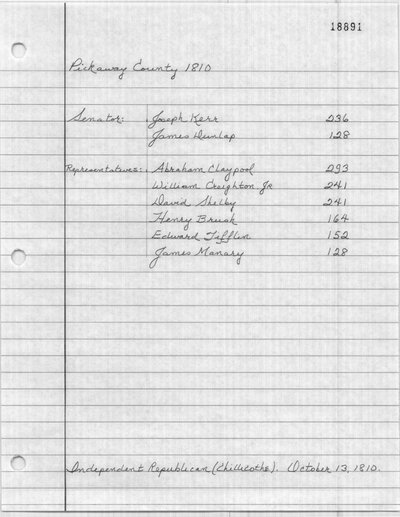 18891
Pickaway County 1810
Senator: Joseph Kerr 236
James Dunlap 128
Representatives: Abraham Claypool 293
William Creighton Jr 241
David Shelby 241
Henry Brush 164
Edward Tiffin 152
James Manary 128
Independent Republican (Chillicothe). October 13, 1810.